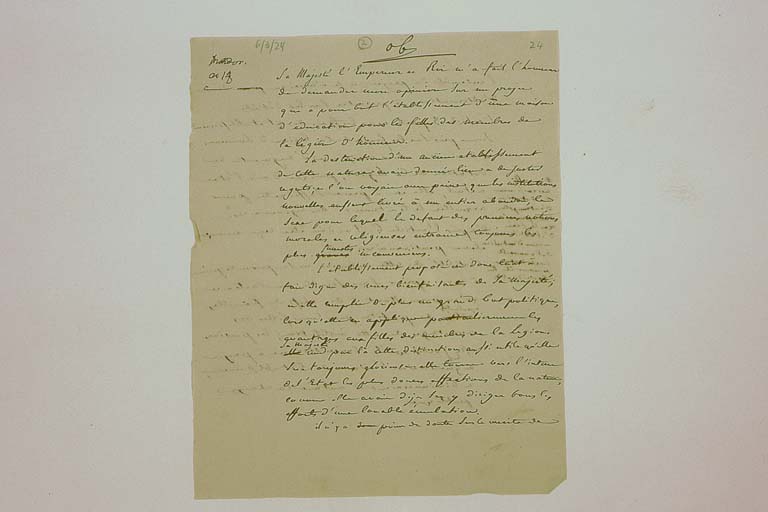 6/3/24
2
24
Sa Majesté l'Empereur et Roi m'a fait l'honneur
de demander mon opinion sur un projet
qui a pour but l'établissement d'une maison
d'éducation pour les filles des membres de
la légion d'honneur.
La destruction d'un ancien établissement
de cette nature avait donné lieu a de justes
regrets, et l'on voyait avec peine que les institutions
nouvelles eussent livré à un entier abandon, le
sexe pour lequel le défaut des premieres notions
morales et religieuses entraine toujours les
plus funestes inconveniens.
l'établissement proposé est donc tout à
fait digne des vues bienfaisantes de Sa Majesté,
elle remplit de plus un grand but politique,
lorsqu'elle en applique particulierement les
avantages aux filles des membres de la Légion
Sa Majesté
par là cette distinction aussi utile qu'elle
sera toujours glorieuse elle tourne vers l'interet
de l'Etat les plus douces affections de la nature,
comme elle avait déja sçu y diriger tous les
efforts d'une louable émulation.
il n'y a point de doute sur le mérite de